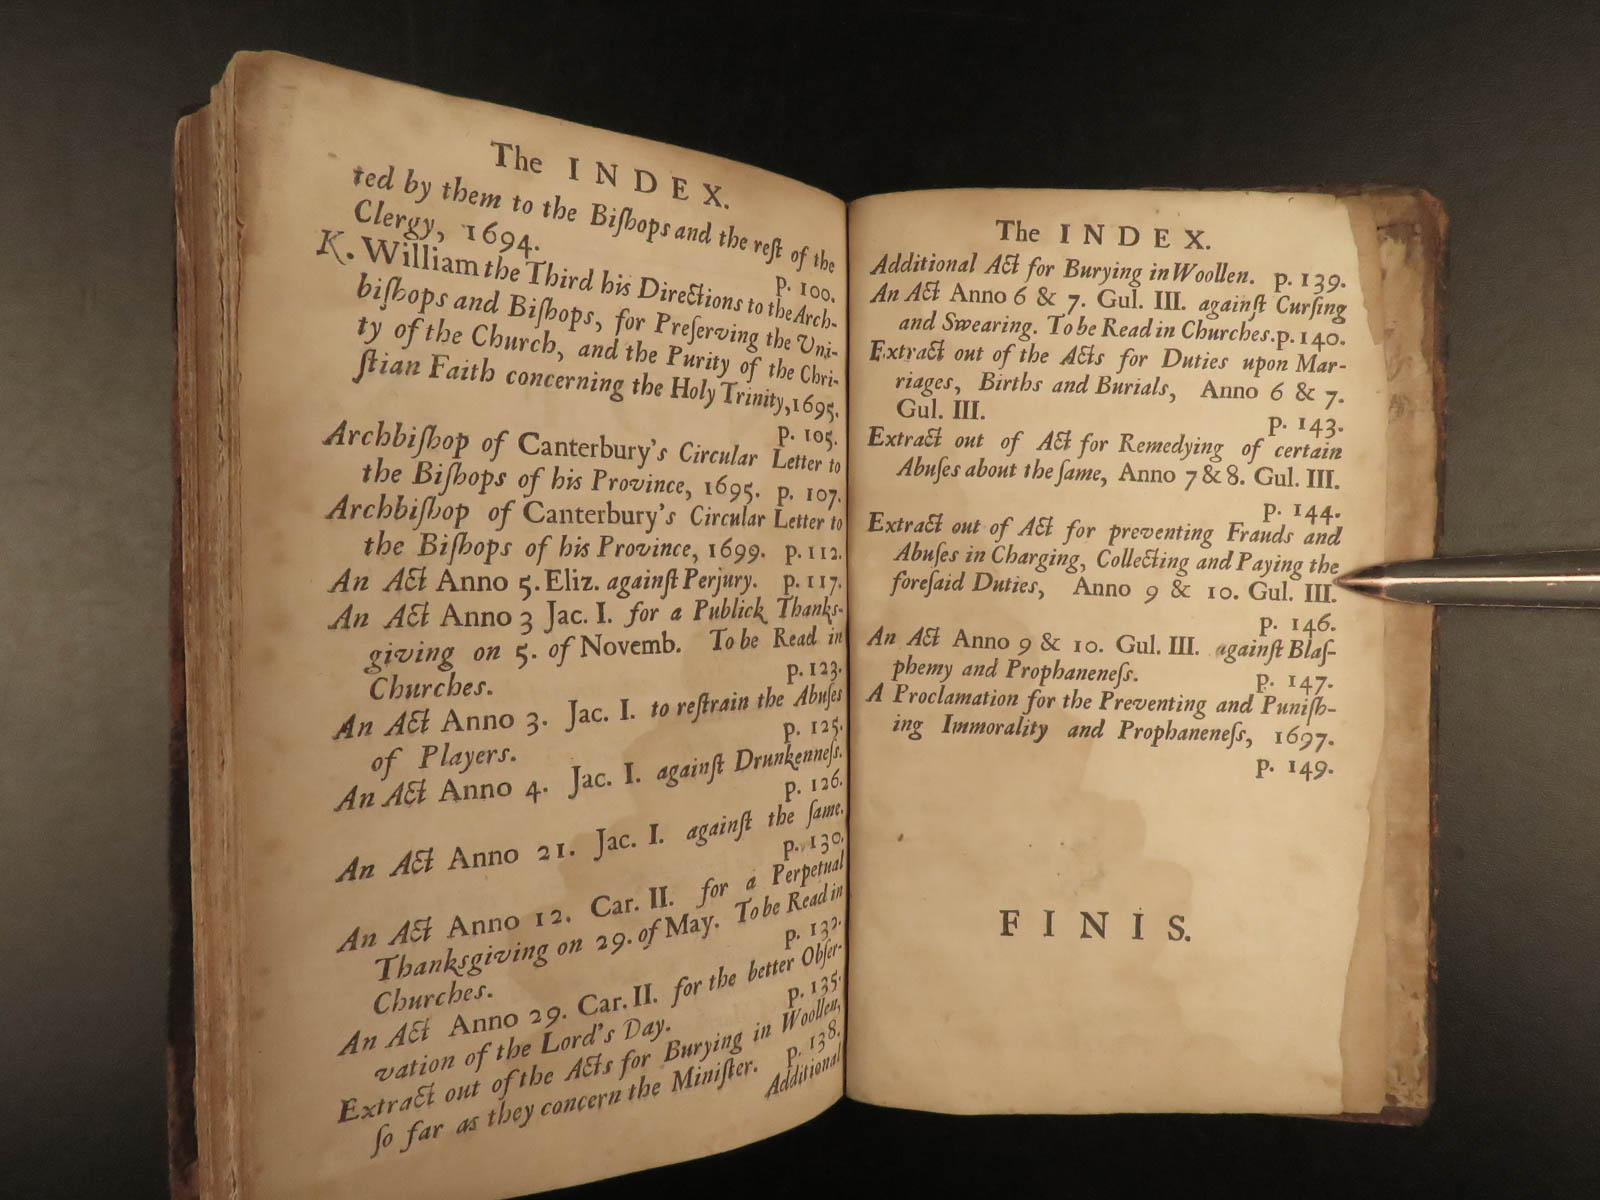 The INDEX.
ted by them to the Biſhops and the reſt of the
Clergy, 1694.
p. 100.
K. William the Third his Directions to the Arch-
biſhops and Biſhops, for Preſerving the Uni-
ty of the Church, and the Purity of the Chri-
ſtian Faith concerning the Holy Trinity, 1695.
p. 105.
Archbiſhop of Canterbury's Circular Letter to
the Biſhops of his Province, 1695. p. 107.
Archbiſhop of Canterbury's Circular Letter to
the Biſhops of his Province, 1699. p. 112.
An Act Anno 5. Eliz. againſt Perjury. p. 117.
An Act Anno 3 Jac. I. for a Publick Thankſ-
giving on 5. of Novemb. To be Read in
Churches. p. 123.
An Act Anno 3. Jac. I. to reſtrain the Abuſes
of Players. p. 125.
An Act Anno 4. Jac. I. againſt Drunkenneſs.
p. 126.
An Act Anno 21. Jac. I. againſt the ſame.
p. 130.
An Act Anno 12. Car. II. for a Perpetual
Thanksgiving on 29. of May. To be Read in
Churches. p. 132.
An Act Anno 29. Car. II. for the better Obſer-
vation of the Lord's Day. p. 135.
Extract out of the Acts for Burying in Woollen,
ſo far as they concern the Miniſter. p. 138.
Additional
The INDEX.
Additional Act for Burying in Woollen. p. 139.
An Act Anno 6 & 7. Gul. III. againſt Curſing
and Swearing. To be Read in Churches. p. 140.
Extract out of the Acts for Duties upon Mar-
riages, Births and Burials, Anno 6 & 7.
Gul. III. p. 143.
Extract out of Act for Remedying of certain
Abuſes about the ſame, Anno 7 & 8. Gul. III.
p. 144.
Extract out of Act for preventing Frauds and
Abuſes in Charging, Collecting and Paying the
foreſaid Duties, Anno 9 & 10. Gul. III.
p. 146.
An Act Anno 9 & 10. Gul. III. againſt Blaſ-
phemy and Prophaneneſs. p. 147.
A Proclamation for the Preventing and Puniſh-
ing Immorality and Prophaneneſs, 1697.
p. 149.
FINIS.